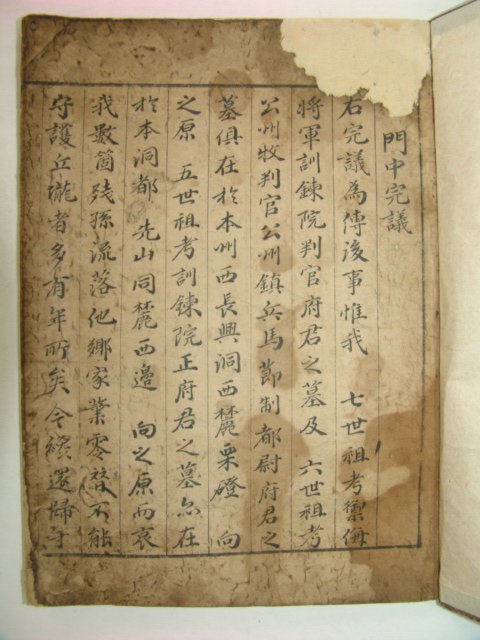 門中完議
右完議為傳後事惟我 七世祖考禦侮
將軍訓鍊院判官府君之墓及 六世祖考
公州牧判官公州鎮兵馬節制都尉府君之
墓俱在於本州西長興洞西麓栗磴 向
之原 五世祖考訓鍊院正府君之墓亦在
於本洞都 先山同麓西邊 向之原而哀
我數箇残孫流落他鄉家業零替不能
守護丘壠者多有年所矣今纔還歸于